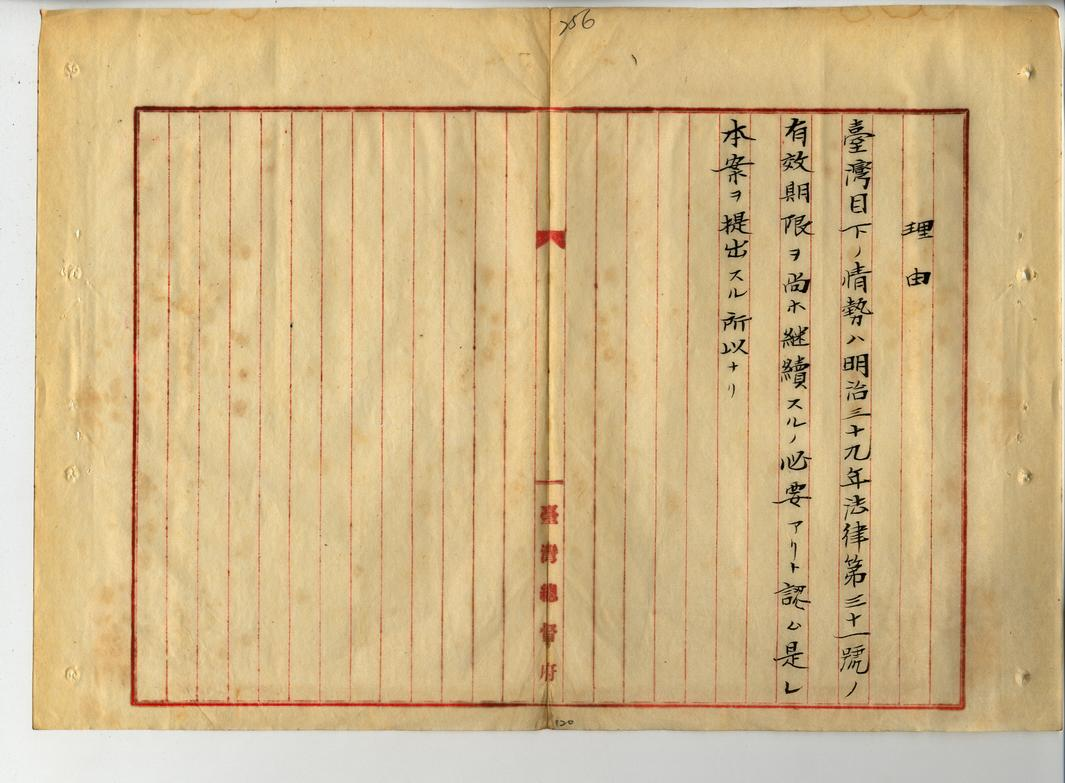 理由
臺灣目下ノ情勢ハ明治三十九年法律第三十一號ノ
有效期限ヲ尚ホ継續スルノ必要アリト認ム是レ
本案ヲ提出スル所以ナリ
臺灣總督府
120